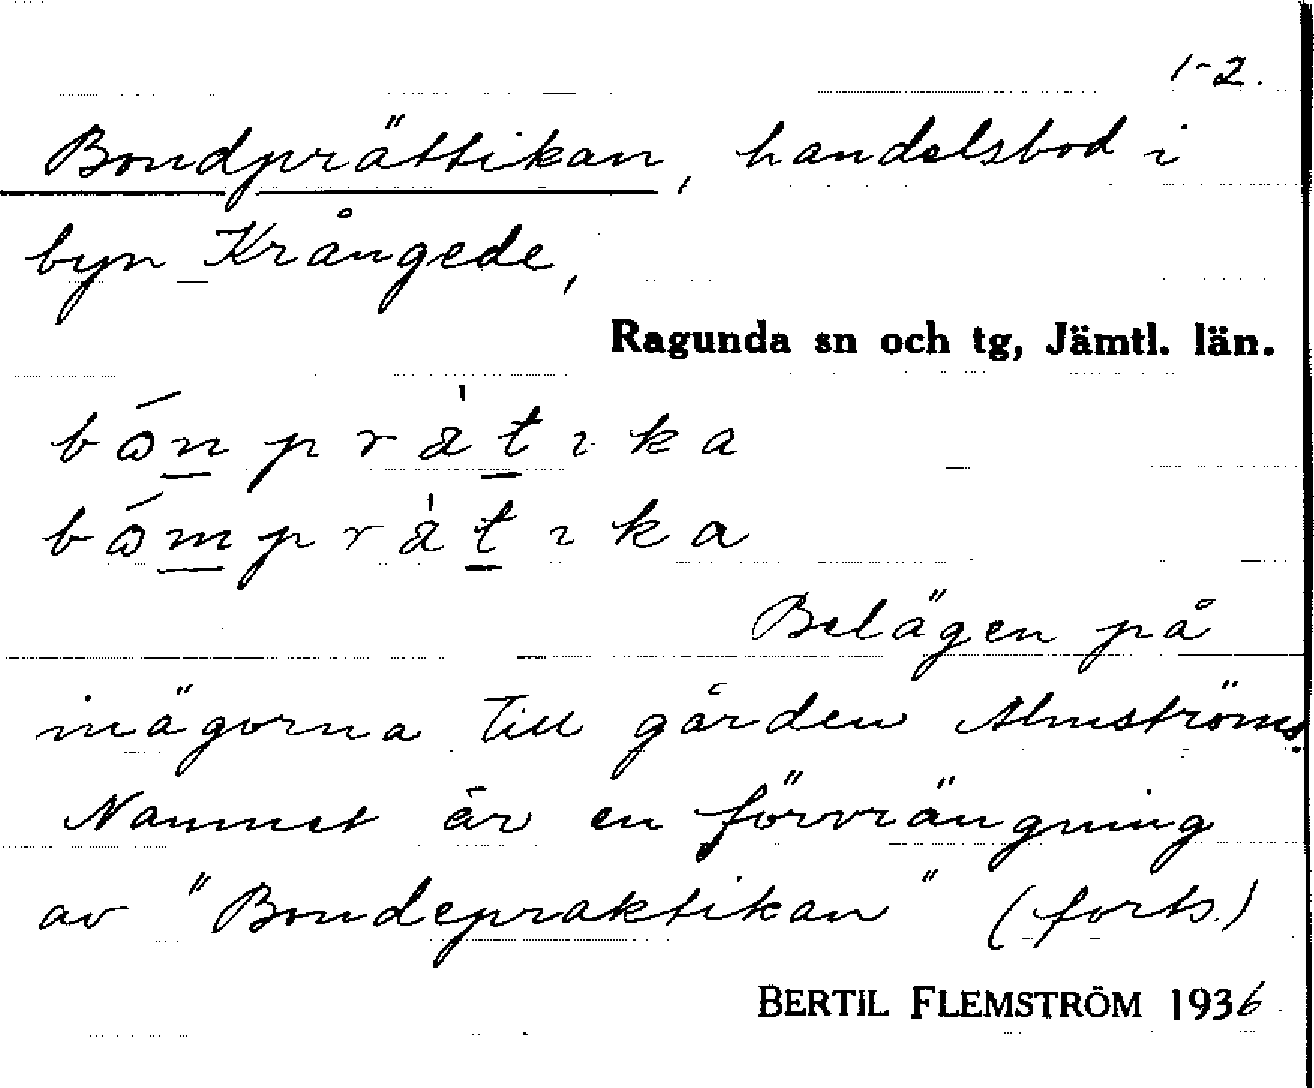 1-2.
Bondprättikan, handelsbod i
byn Krångede,
Ragunda sn och tg, Jämtl. län.
bónpràtıka
bómpràtıka
Belägen på
inägorna till gården Almströms.
Namnet är en förvrängning
av "Bondepraktikan" (forts.)
BERTIL FLEMSTRÖM 1936